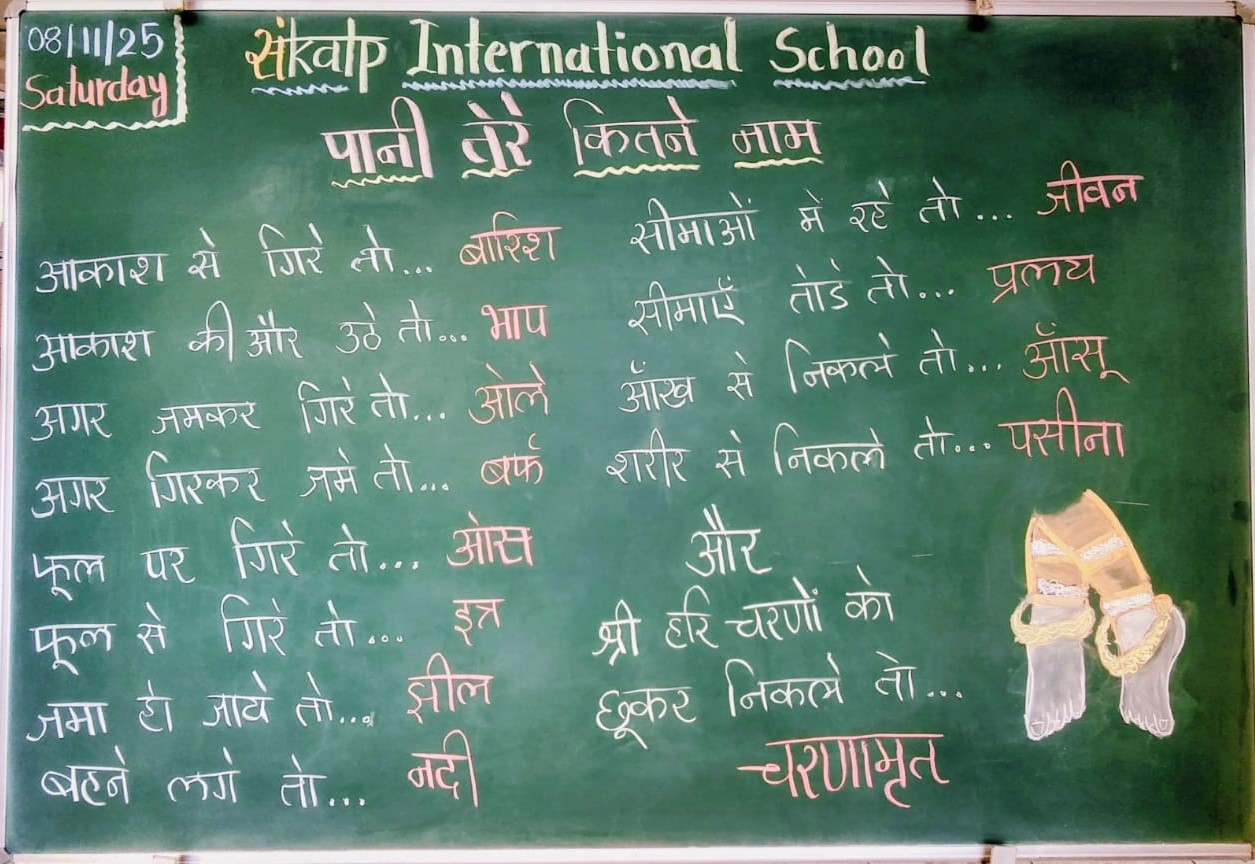 08/11/25
Saturday
संkalp International School
पानी तेरे कितने नाम
आकाश से गिरे तो... बारिश
आकाश की और उठे तो... भाप
अगर जमकर गिरे तो... ओले
अगर गिरकर जमे तो... बर्फ
फूल पर गिरे तो... ओस
फूल से गिरे तो... इत्र
जमा हो जाये तो... झील
बहने लगे तो... नदी
सीमाओं में रहे तो... जीवन
सीमाएँ तोडे तो... प्रलय
आँख से निकले तो... आँसू
शरीर से निकले तो... पसीना
और
श्री हरि चरणों को
छूकर निकले तो...
चरणामृत